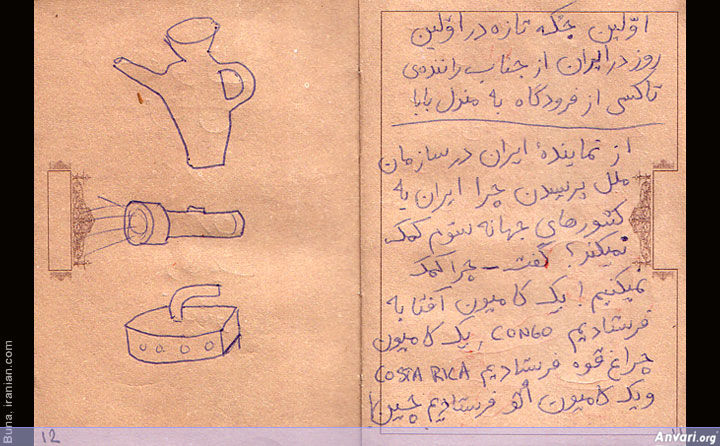 اوّلین جُکه تازه در اوّلین
روز در ایران از جناب راننده‌ی
تاکسی از فرودگاه به منزل بابا
از نمایندهٔ ایران در سازمان
ملل پرسیدن چرا ایران به
کشورهای جهانه سوّم کمک
نمیکند؟ گفت ـ چرا کمک
نمیکنیم! یک کامیون آفتابه
فرستادیم CONGO, یک کامیون
چراغ قوه فرستادیم COSTA RICA
و یک کامیون اُتو فرستادیم چین!
11
12
Buna, iranian.com
Anvari.org